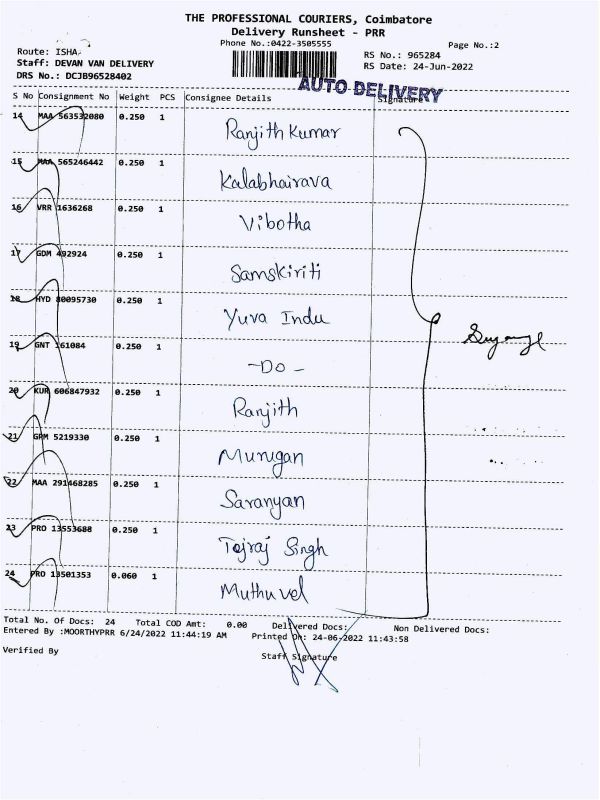 THE PROFESSIONAL COURIERS, Coimbatore
Delivery Runsheet - PRR
Phone No.:0422-3505555
Page No.:2
Route: ISHA
Staff: DEVAN VAN DELIVERY
DRS No.: DCJB96528402
RS No.: 965284
RS Date: 24-Jun-2022
AUTO DELIVERY
S No Consignment No Weight PCS Consignee Details Signature
14 MAA 563532080 0.250 1 Ranjith Kumar
15 MAA 565246442 0.250 1 Kalabhairava
16 VRR 1636268 0.250 1 Vibotha
17 GDM 492924 0.250 1 Samskiriti
18 HYD 80095730 0.250 1 Yuva Indu
19 GNT 161084 0.250 1 -Do-
20 KUR 606847932 0.250 1 Ranjith
21 GPM 5219330 0.250 1 Murugan
22 MAA 291468285 0.250 1 Saranyan
23 PRO 13553688 0.250 1 Tejraj Singh
24 PRO 13501353 0.060 1 Muthuvel
Total No. Of Docs: 24 Total COD Amt: 0.00 Delivered Docs: Non Delivered Docs:
Entered By :MOORTHYPRR 6/24/2022 11:44:19 AM Printed On: 24-06-2022 11:43:58
Verified By Staff Signature